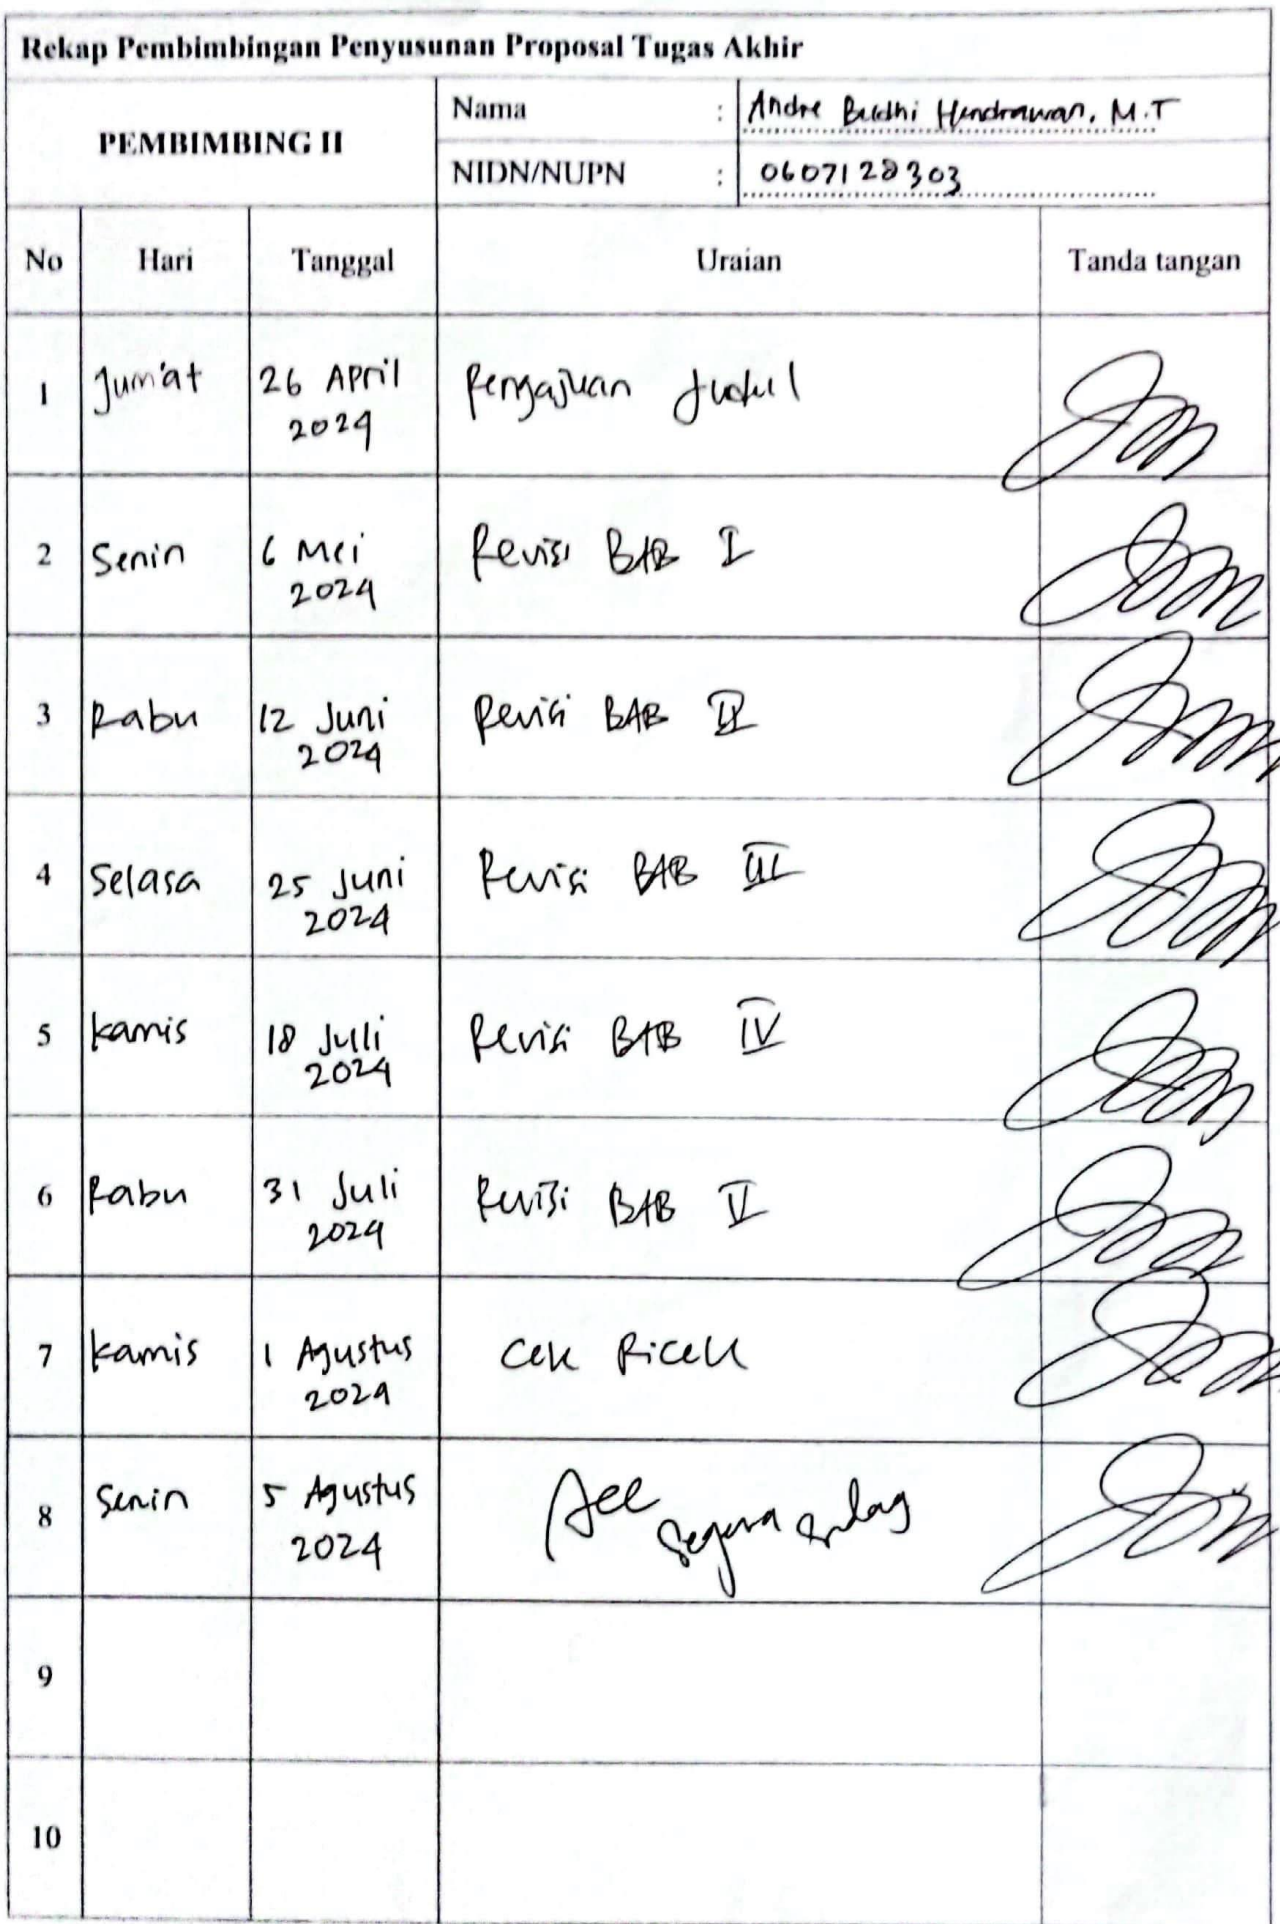 Rekap Pembimbingan Penyusunan Proposal Tugas Akhir
PEMBIMBING II
Nama : Andre Budhi Hendrawan, M.T
NIDN/NUPN : 0607128303
No Hari Tanggal Uraian Tanda tangan
1 Jum'at 26 April Pengajuan Judul
2024
2 Senin 6 Mei Revisi BAB I
2024
3 Rabu 12 Juni Revisi BAB II
2024
4 Selasa 25 Juni Revisi BAB III
2024
5 Kamis 18 Juli Revisi BAB IV
2024
6 Rabu 31 Juli Revisi BAB V
2024
7 Kamis 1 Agustus Cek Ricek
2024
8 Senin 5 Agustus Acc segera
2024
9
10